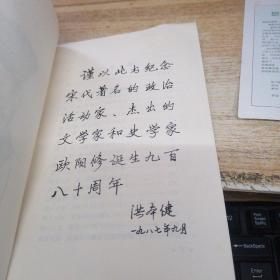 谨以此书纪念
宋代著名的政治
活动家、杰出的
文学家和史学家
欧阳修诞生九百
八十周年
洪本健
一九八七年九月